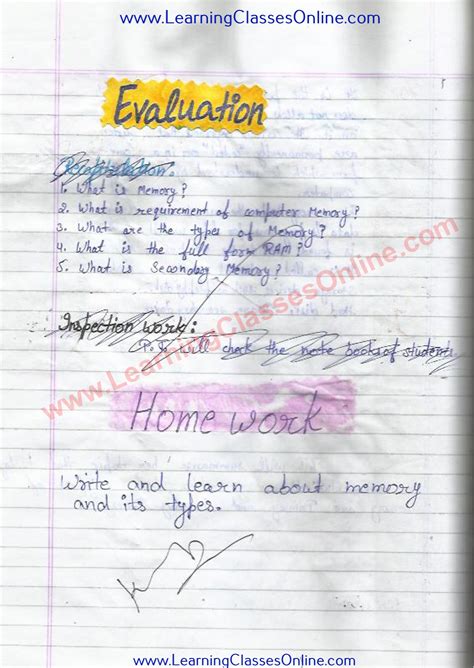 www.LearningClassesOnline.com
Evaluation
Recapitulation:
1. What is Memory?
2. What is requirement of computer Memory?
3. What are the types of Memory?
4. What is the full form RAM?
5. What is Secondary Memory?
www.LearningClassesOnline.com
Inspection work:
P.T. will check the note books of students
Home work
Write and learn about memory
and its types.
www.LearningClassesOnline.com